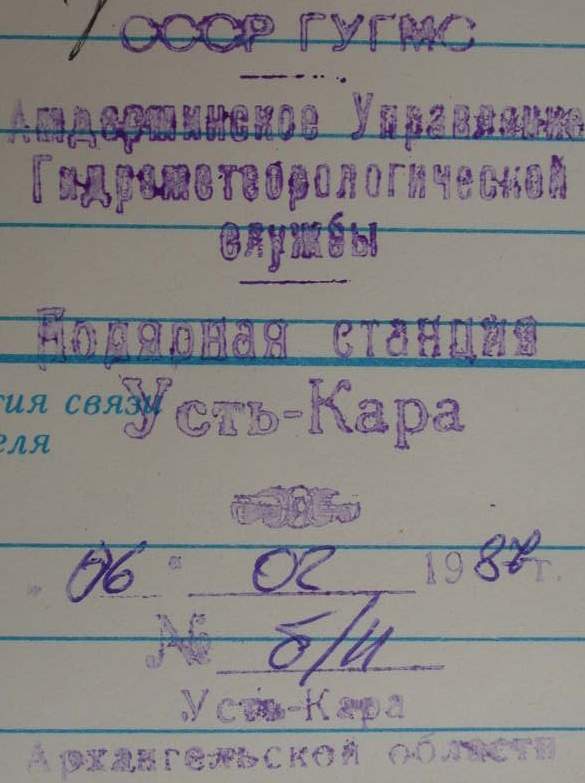 СССР ГУГМС
Амдерминское Управление
Гидрометеорологической
службы
Полярная станция
тия связи
еля
Усть-Кара
„06“ 02 1987 г.
№ б/н
Усть-Кара
Архангельской области